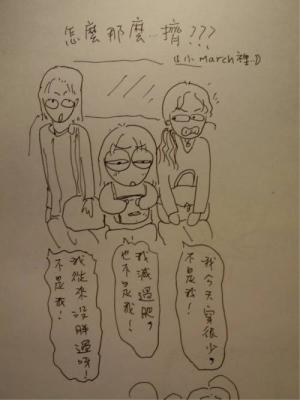 怎麼那麼擠???
小March裡
我今天穿很少，
不是我！
我減過肥，
也不是我！
我從來沒胖過呀！
不是我！